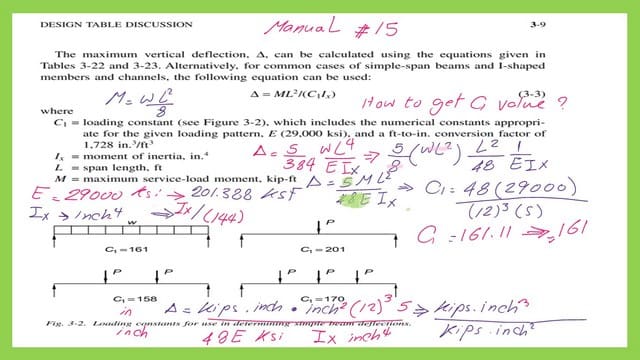 DESIGN TABLE DISCUSSION Manual #15 3-9
The maximum vertical deflection, Δ, can be calculated using the equations given in
Tables 3-22 and 3-23. Alternatively, for common cases of simple-span beams and I-shaped
members and channels, the following equation can be used:
M = WL²/8 Δ = ML²/(C₁Iₓ) (3-3)
where How to get C₁ value ?
C₁ = loading constant (see Figure 3-2), which includes the numerical constants appropri-
ate for the given loading pattern, E (29,000 ksi), and a ft-to-in. conversion factor of
1,728 in.³/ft³
Δ = 5/384 WL⁴/E Iₓ ⇒ 5/8 (WL²) L²/48 1/E Iₓ
Iₓ = moment of inertia, in.⁴
L = span length, ft
M = maximum service-load moment, kip-ft
Δ = 5 M L²/48 E Iₓ ⇒ C₁ = 48(29000)/(12)³(5)
E = 29000 Ksi → 201.388 Ksf
Iₓ → inch⁴ → Iₓ/(144)
C₁ = 161.11 ⇒ 161
w P
C₁ = 161 C₁ = 201
P P P P P
C₁ = 158 C₁ = 170
in
inch
Δ = Kips.inch • inch² (12)³ 5/48E Ksi Iₓ inch⁴ ⇒ Kips.inch³/Kips.inch²
Fig. 3-2. Loading constants for use in determining simple beam deflections.